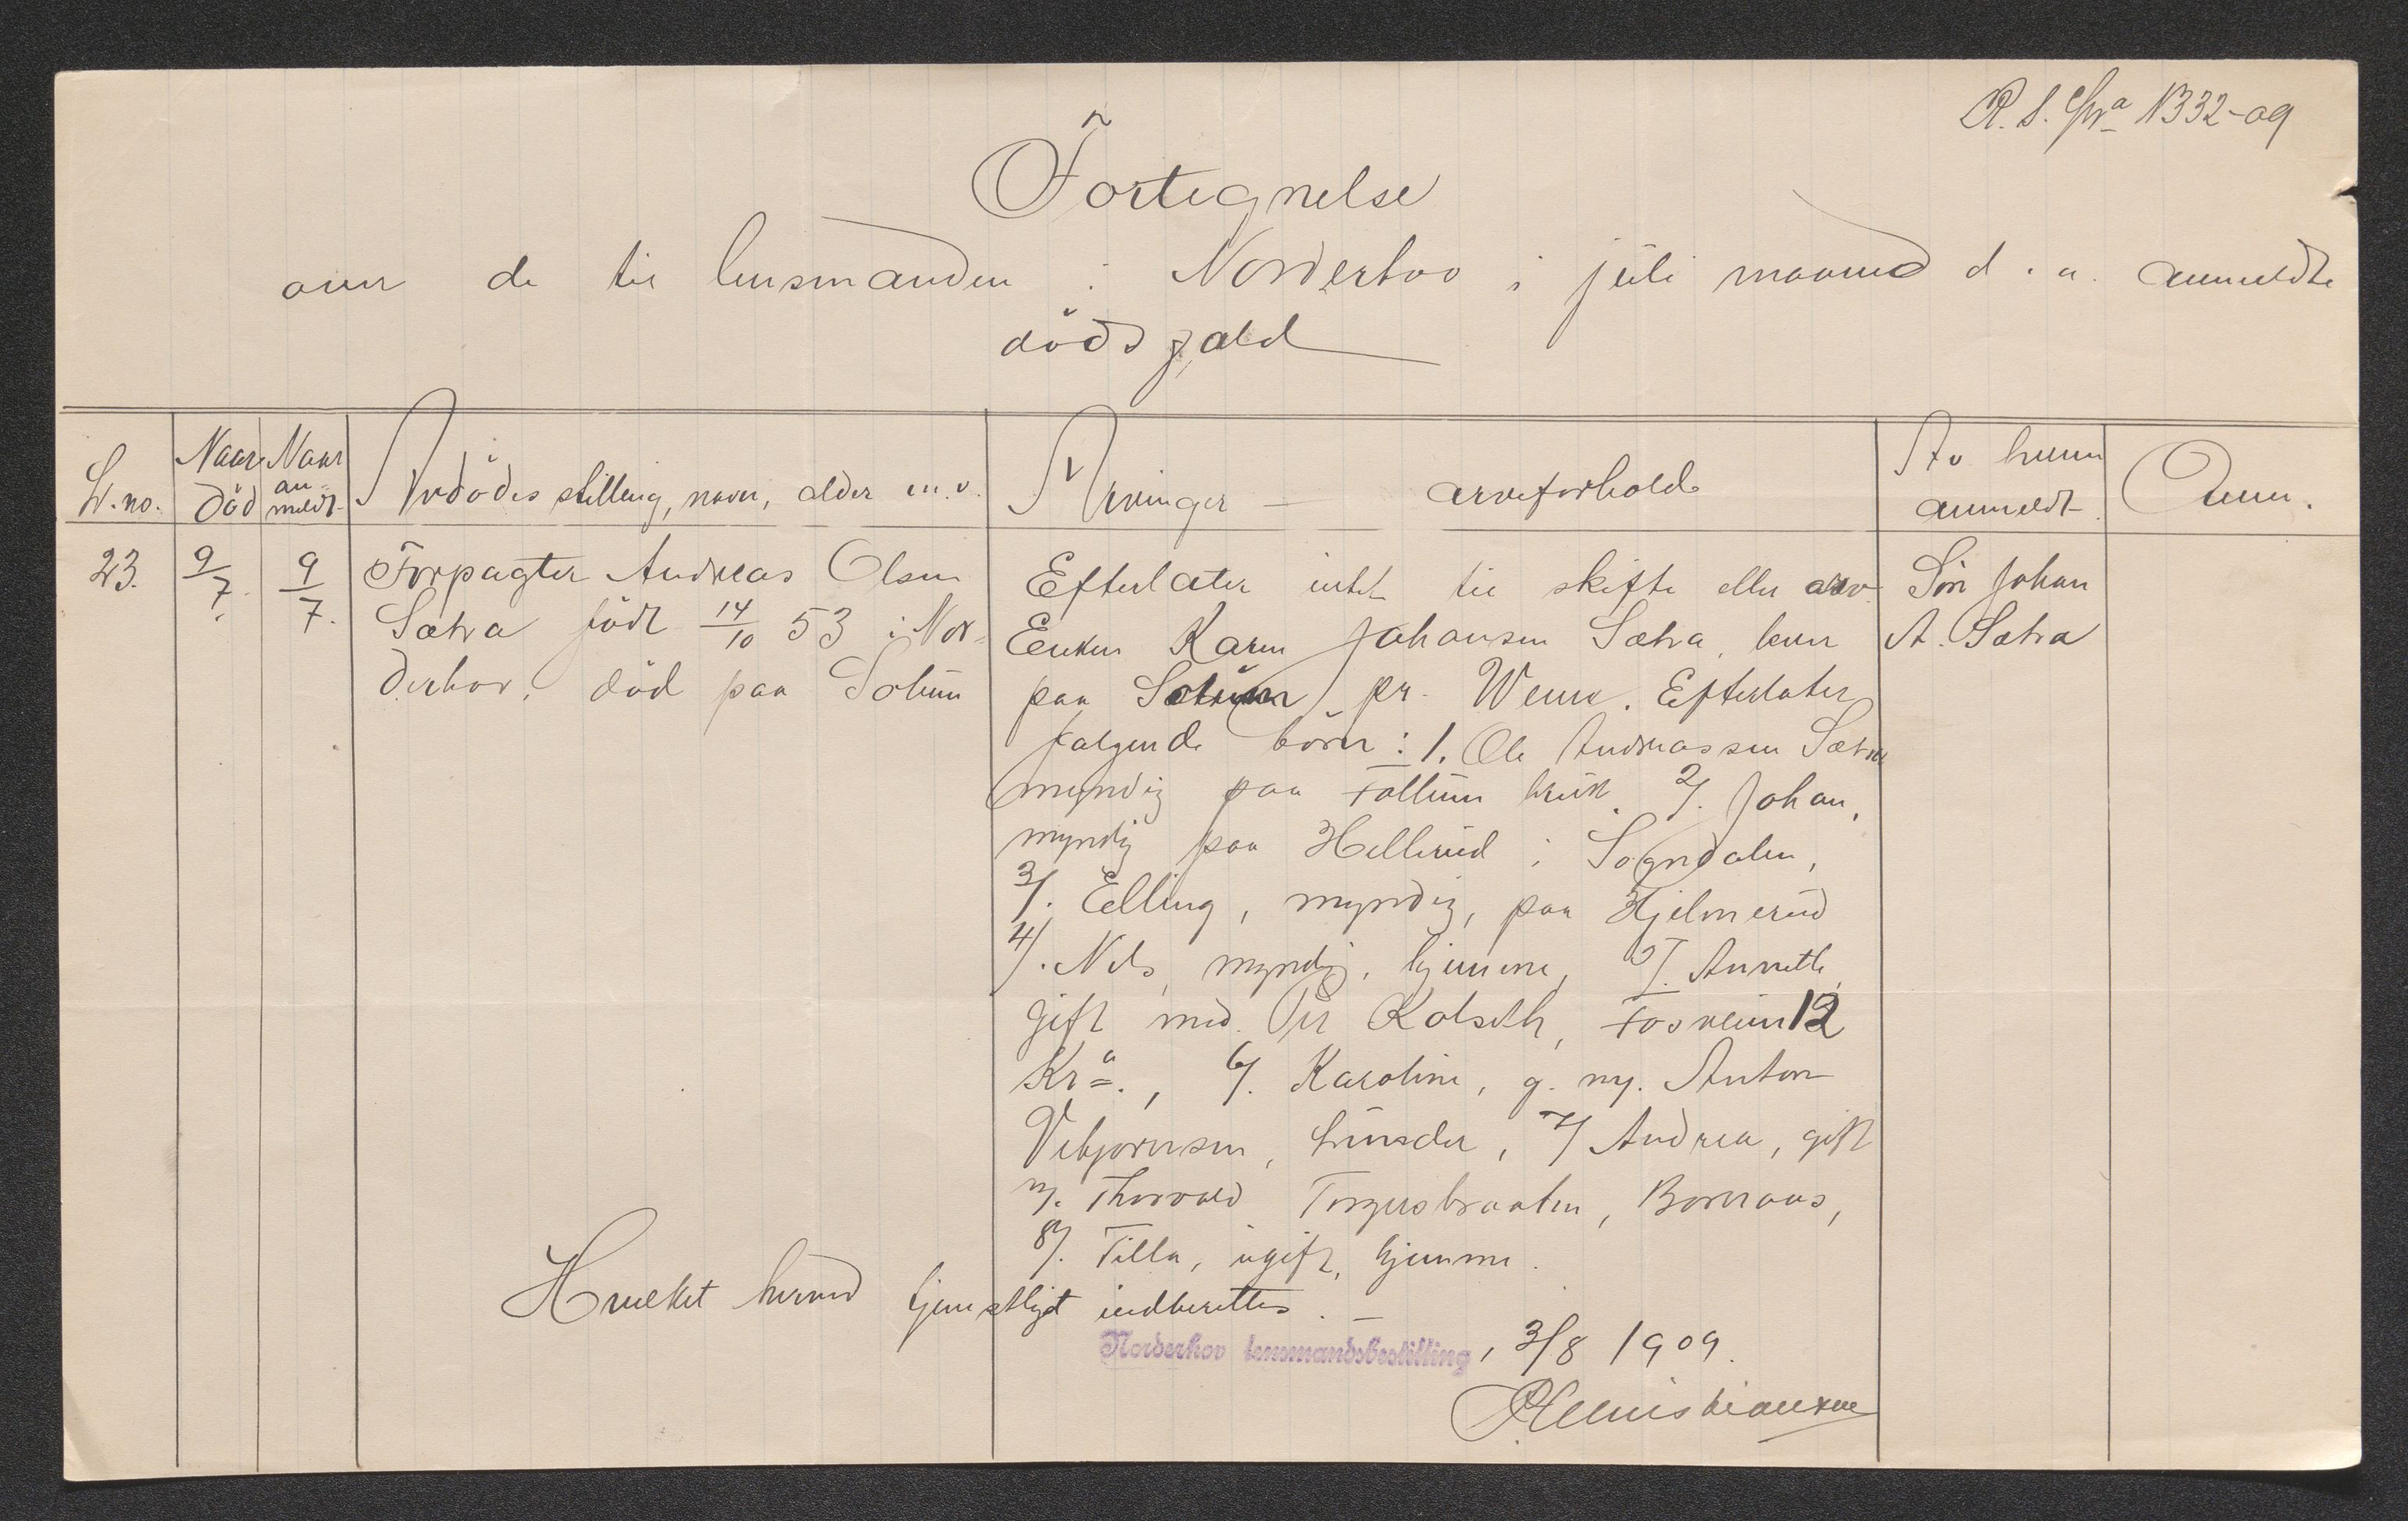 R. S. 1332-09
Fortegnelse
over de til lensmanden i Norderhov i juli maaned d. a. anmeldte
dödsfald
L. no.
Naar död
Naar an-meldt
Avdödes stilling, navn, alder m. v.
Arvinger – arveforhold
Av hvem anmeldt
Anm.
23.
9/7.
9/7.
Forpagter Andreas Olsen
Sætra födt 14/10 53 i Nor-
derhov, död paa Solum
Efterlater intet til skifte eller arv.
Enken Karen Johansen Sætra, lever
paa Solum pr. Weme. Efterlater
følgende börn: 1. Ole Andreassen Sætra
myndig paa Follum bruk. 2/. Johan,
myndig paa Hellerud i Sogndalen,
3/. Elling, myndig, paa Hjelmerud
4/. Nels, myndig, hjemme, 5/. Annette,
gift med Per Kolseth, Fosveien 12
Kra., 6/. Karoline, g. m/. Anton
Vebjørnsen, Hunsder, 7/ Andrea, gift
m/. Thorvald Torgersbraaten, Boreraas,
8/. Tilla, ugift, hjemme.
Søn Johan
A. Sætra
Hvilket herved tjenstligst indberettes. –
Norderhov lensmandsbestilling, 3/8 1909.